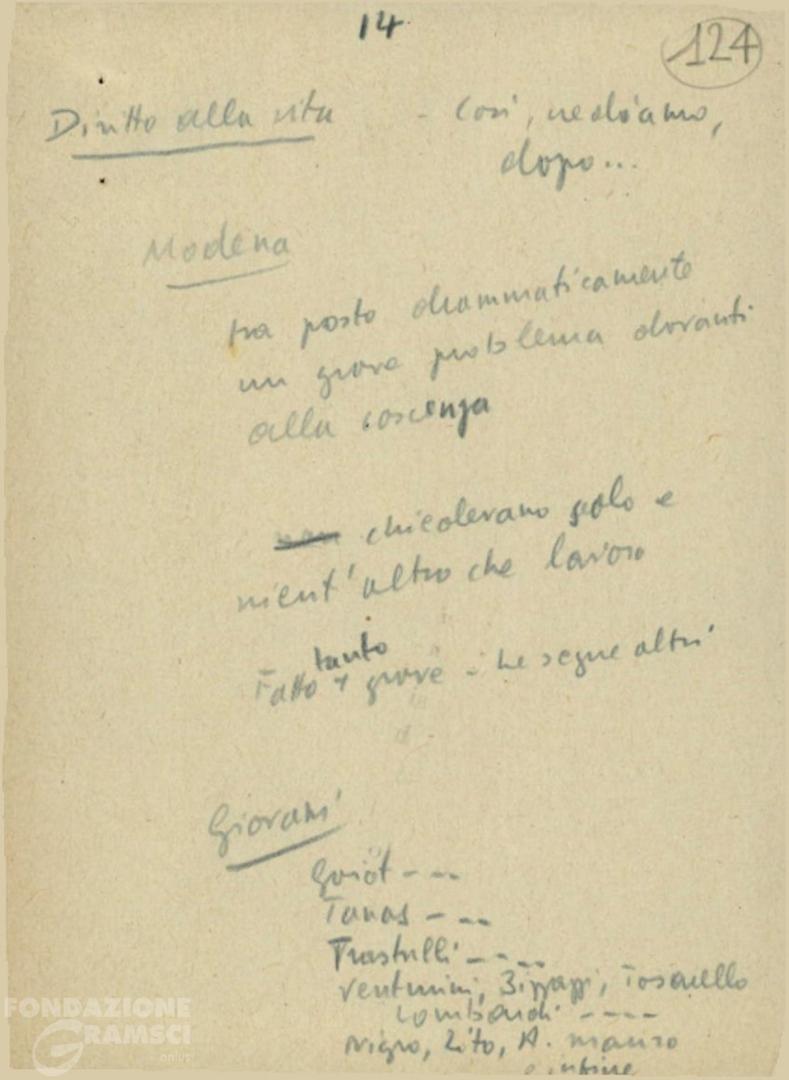 14
124
Diritto alla vita - Così, vediamo,
dopo...
Modena
ha posto drammaticamente
un grave problema davanti
alla coscienza
non chiedevano solo e
nient'altro che lavoro
tanto
Fatto + grave - he segue altri
Giovani
Tanas - --
Trastulli - - --
Venturini, Bizzarri, Tosarello
Lombardi - - - -
Nigro, Zito, A. Mauro
FONDAZIONE
GRAMSCI
onlus